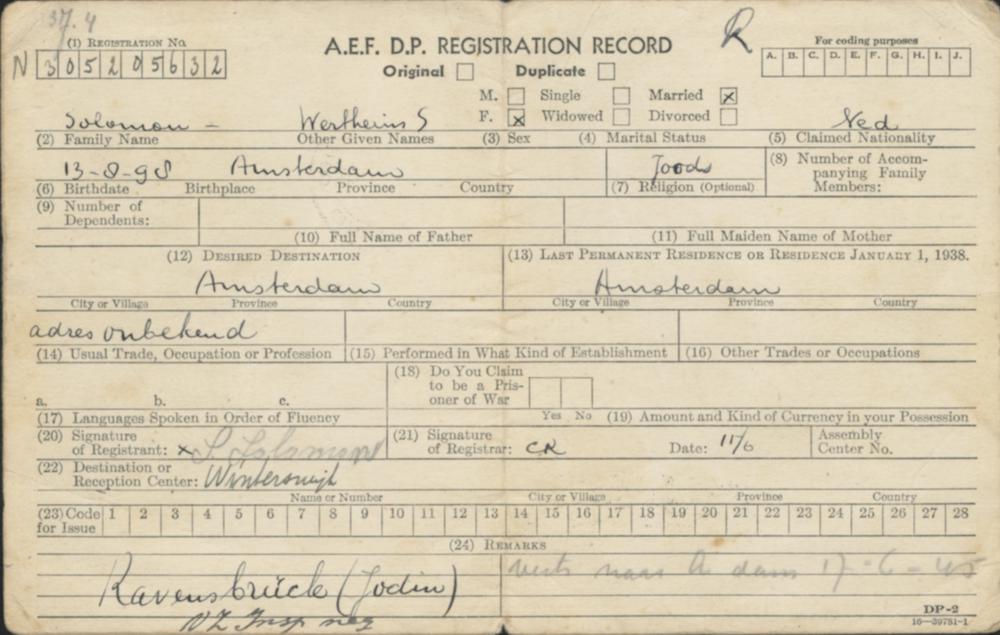 37.4
(1) REGISTRATION NO.
N 30520 5632
A.E.F. D.P. REGISTRATION RECORD
R
Original Duplicate
For coding purposes
A. B. C. D. E. F. G. H. I. J.
M. Single Married x
F. x Widowed Divorced
Solomon - Wertheims S Ned
(2) Family Name Other Given Names (3) Sex (4) Marital Status (5) Claimed Nationality
13-8-98 Amsterdam Joods
(6) Birthdate Birthplace Province Country (7) Religion (Optional) (8) Number of Accompanying Family Members:
(9) Number of Dependents:
(10) Full Name of Father (11) Full Maiden Name of Mother
(12) DESIRED DESTINATION (13) LAST PERMANENT RESIDENCE OR RESIDENCE JANUARY 1, 1938.
Amsterdam Amsterdam
City or Village Province Country City or Village Province Country
adres onbekend
(14) Usual Trade, Occupation or Profession (15) Performed in What Kind of Establishment (16) Other Trades or Occupations
(18) Do You Claim to be a Prisoner of War
a. b. c.
Yes No
(17) Languages Spoken in Order of Fluency (19) Amount and Kind of Currency in your Possession
(20) Signature of Registrant: x S. Solomon (21) Signature of Registrar: CR Date: 11/6 Assembly Center No.
(22) Destination or Reception Center: Winterswijk
Name or Number City or Village Province Country
(23) Code for Issue 1 2 3 4 5 6 7 8 9 10 11 12 13 14 15 16 17 18 19 20 21 22 23 24 25 26 27 28
(24) REMARKS
Ravensbrück (Jodin) naar A dam 17-6-45
NZ Insp neg
DP-2
16—39751-1